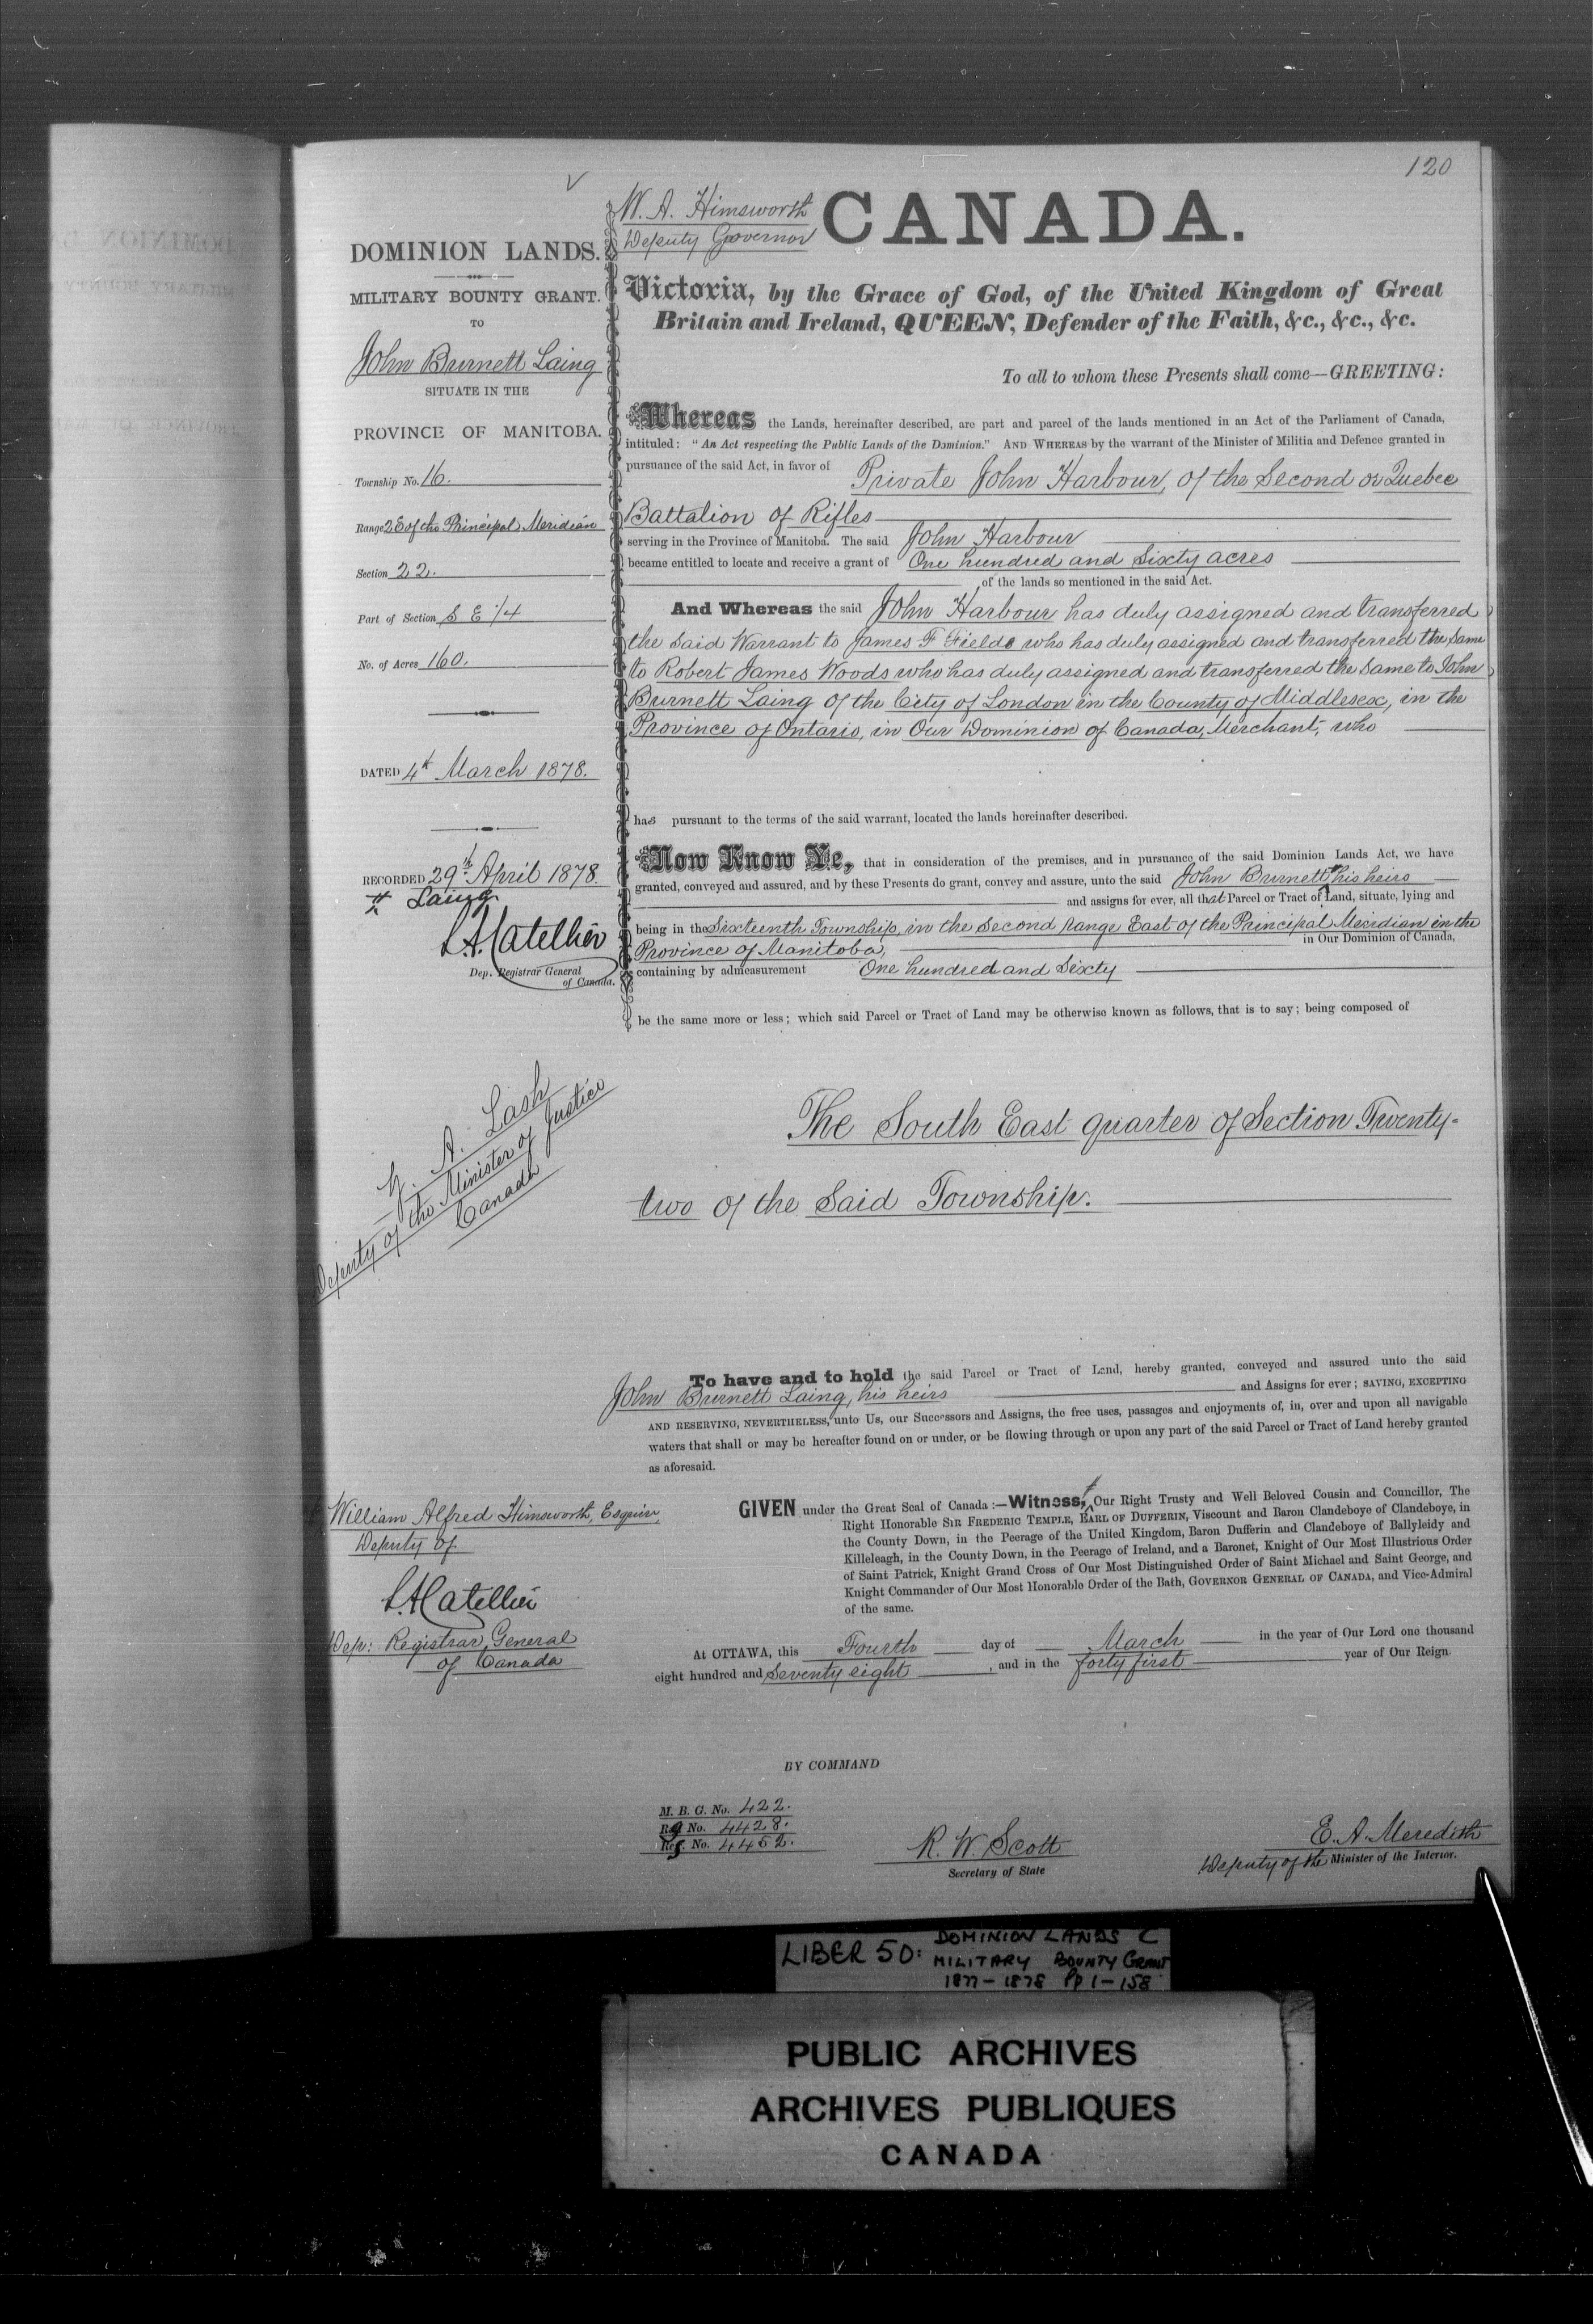 120
W. A. Himsworth
Deputy Governor
CANADA.
DOMINION LANDS.
MILITARY BOUNTY GRANT.
TO
John Burnett Laing
SITUATE IN THE
PROVINCE OF MANITOBA.
Township No. 16.
Range 2 E of the Principal Meridian
Section 22.
Part of Section S E 1/4
No. of Acres 160.
DATED 4th March 1878.
RECORDED 29th April 1878.
# Laing
L.A. Catellier
Dep. Registrar General
of Canada.
Victoria, by the Grace of God, of the United Kingdom of Great
Britain and Ireland, QUEEN, Defender of the Faith, &c., &c., &c.
To all to whom these Presents shall come—GREETING:
Whereas the Lands, hereinafter described, are part and parcel of the lands mentioned in an Act of the Parliament of Canada,
intituled: "An Act respecting the Public Lands of the Dominion." AND WHEREAS by the warrant of the Minister of Militia and Defence granted in
pursuance of the said Act, in favor of Private John Harbour, of the Second or Quebec
Battalion of Rifles
serving in the Province of Manitoba. The said John Harbour
became entitled to locate and receive a grant of One hundred and Sixty acres
of the lands so mentioned in the said Act.
And Whereas the said John Harbour has duly assigned and transferred
the said Warrant to James F Fields who has duly assigned and transferred the same
to Robert James Woods who has duly assigned and transferred the same to John
Burnett Laing of the City of London in the County of Middlesex, in the
Province of Ontario, in Our Dominion of Canada, Merchant, who
has pursuant to the terms of the said warrant, located the lands hereinafter described.
Now Know Ye, that in consideration of the premises, and in pursuance of the said Dominion Lands Act, we have
granted, conveyed and assured, and by these Presents do grant, convey and assure, unto the said John Burnett # his heirs
and assigns for ever, all that Parcel or Tract of Land, situate, lying and
being in the Sixteenth Township, in the Second range East of the Principal Meridian in the
Province of Manitoba, in Our Dominion of Canada,
containing by admeasurement One hundred and Sixty
be the same more or less; which said Parcel or Tract of Land may be otherwise known as follows, that is to say; being composed of
The South East quarter of Section Twenty-
two of the Said Township.
Z. A. Lash
Deputy of the Minister of Justice
Canada
To have and to hold the said Parcel or Tract of Land, hereby granted, conveyed and assured unto the said
John Burnett Laing, his heirs and Assigns for ever; SAVING, EXCEPTING
AND RESERVING, NEVERTHELESS, unto Us, our Successors and Assigns, the free uses, passages and enjoyments of, in, over and upon all navigable
waters that shall or may be hereafter found on or under, or be flowing through or upon any part of the said Parcel or Tract of Land hereby granted
as aforesaid.
William Alfred Himsworth, Esquire,
Deputy of
L.A. Catellier
Dep: Registrar General
of Canada
GIVEN under the Great Seal of Canada:—Witness, Our Right Trusty and Well Beloved Cousin and Councillor, The
Right Honorable SIR FREDERIC TEMPLE, EARL OF DUFFERIN, Viscount and Baron Clandeboye of Clandeboye, in
the County Down, in the Peerage of the United Kingdom, Baron Dufferin and Clandeboye of Ballyleidy and
Killeleagh, in the County Down, in the Peerage of Ireland, and a Baronet, Knight of Our Most Illustrious Order
of Saint Patrick, Knight Grand Cross of Our Most Distinguished Order of Saint Michael and Saint George, and
Knight Commander of Our Most Honorable Order of the Bath, GOVERNOR GENERAL OF CANADA, and Vice-Admiral
of the same.
At OTTAWA, this Fourth day of March in the year of Our Lord one thousand
eight hundred and Seventy eight, and in the forty first year of Our Reign.
BY COMMAND
M. B. G. No. 422.
Rg No. 4428.
Ref. No. 4452.
R. W. Scott
Secretary of State
E. A. Meredith
Deputy of the Minister of the Interior.
LIBER 50: DOMINION LANDS C
MILITARY BOUNTY GRANT
1877-1878 Pp 1-158
PUBLIC ARCHIVES
ARCHIVES PUBLIQUES
CANADA